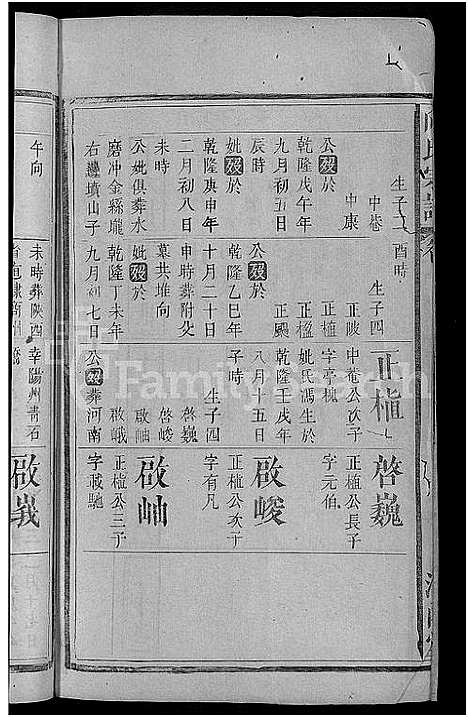 生子二
中菴
中康
公歿於
乾隆戊午年
九月初五日
辰時
妣歿於
乾隆庚申年
二月初八日
未時
公妣俱葬水
磨冲金縣壠
右邊墳山子
午向
酉時
生子四
正陂
正楹
正飃
公歿於
乾隆乙巳年
十月二十日
申時葬附父
墓共堆向
妣歿於
乾隆丁未年
九月初七日
未時葬陝西
正植
中菴公次子
字亭槐
妣氏馮生於
乾隆壬戌年
八月十五日
子時
生子四
啓巍
啓峻
啟岫
啟峨
公歿葬河南
幸陽州青石
啓巍
正植公長子
字元伯
啟峻
正植公次子
字有凡
啟岫
正植公三子
字彧馳
啟峩
FamilySearch